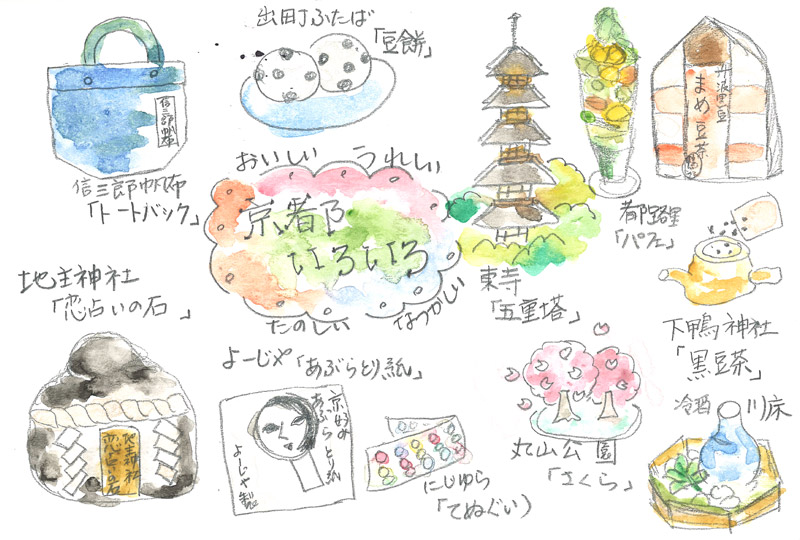 出町ふたば
「豆餅」
信三郎帆布
信三郎帆布
「トートバック」
おいしい うれしい
京都
いろいろ
たのしい なつかしい
東寺
「五重塔」
都路里
「パフェ」
丹波黒豆
まめ豆茶
下鴨神社
「黒豆茶」
地主神社
「恋占いの石」
地主神社
恋占いの石
よーじや「あぶらとり紙」
京好み
あぶらとり紙
よーじや製
にじゆら
「てぬぐい」
丸山公園
「さくら」
冷酒 川床